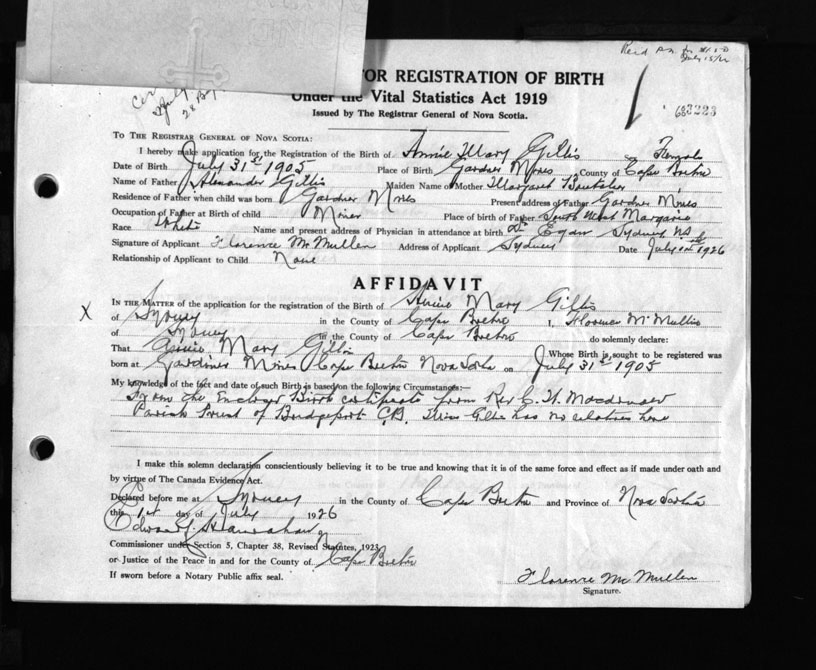 FOR REGISTRATION OF BIRTH
Under the Vital Statistics Act 1919
Issued by The Registrar General of Nova Scotia.
TO THE REGISTRAR GENERAL OF NOVA SCOTIA:
I hereby make application for the Registration of the Birth of Annie Mary Gillis Female
Date of Birth July 31st 1905 Place of Birth Gardner Mines County of Cape Breton
Name of Father Alexander Gillis Maiden Name of Mother Margaret
Residence of Father when child was born Gardner Mines Present address of Father Gardner Mines
Occupation of Father at Birth of child Miner Place of birth of Father South West Margaree
Race White Name and present address of Physician in attendance at birth Dr Egan Sydney N.S.
Signature of Applicant Florence McMullen Address of Applicant Sydney Date July 1926
Relationship of Applicant to Child None
AFFIDAVIT
X IN THE MATTER of the application for the registration of the Birth of Annie Mary Gillis
of Sydney in the County of Cape Breton I, Florence McMullin
of Sydney in the County of Cape Breton do solemnly declare:
That Annie Mary Gillis Whose Birth is sought to be registered was
born at Gardiner Mines Cape Breton Nova Scotia on July 31st 1905
My knowledge of the fact and date of such Birth is based on the following Circumstances:—
From the Enclosed Birth certificate from Rev C. H. Macdonald
Parish Priest of Bridgeport C.B. Miss Gillis has no relatives here
I make this solemn declaration conscientiously believing it to be true and knowing that it is of the same force and effect as if made under oath and
by virtue of The Canada Evidence Act.
Declared before me at Sydney in the County of Cape Breton and Province of Nova Scotia
this 1st day of July 1926
Commissioner under Section 5, Chapter 38, Revised Statutes, 1923
or Justice of the Peace in and for the County of Cape Breton
If sworn before a Notary Public affix seal.
Florence McMullen
Signature.